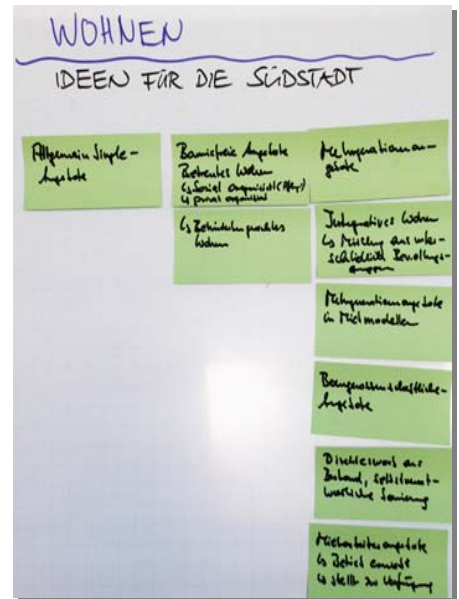 WOHNEN
IDEEN FÜR DIE SÜDSTADT
Allgemein Single-
Angebote
Barrierefreie Angebote
Betreutes Wohnen
↳ Sozial organisiert (Pflege)
↳ privat organisiert
↳ Behindertengerechtes
Wohnen
Mehrgenerationenan-
gebote
Integratives Wohnen
↳ Mischung aus unter-
schiedlichen Bevölkerungs-
gruppen
Mehrgenerationenangebote
in Mietmodellen
Baugenossenschaftliche-
Angebote
aus
Bestand,
Sanierung
Mitarbeiterangebote
↳ Betrieb
↳ stellt zur Verfügung